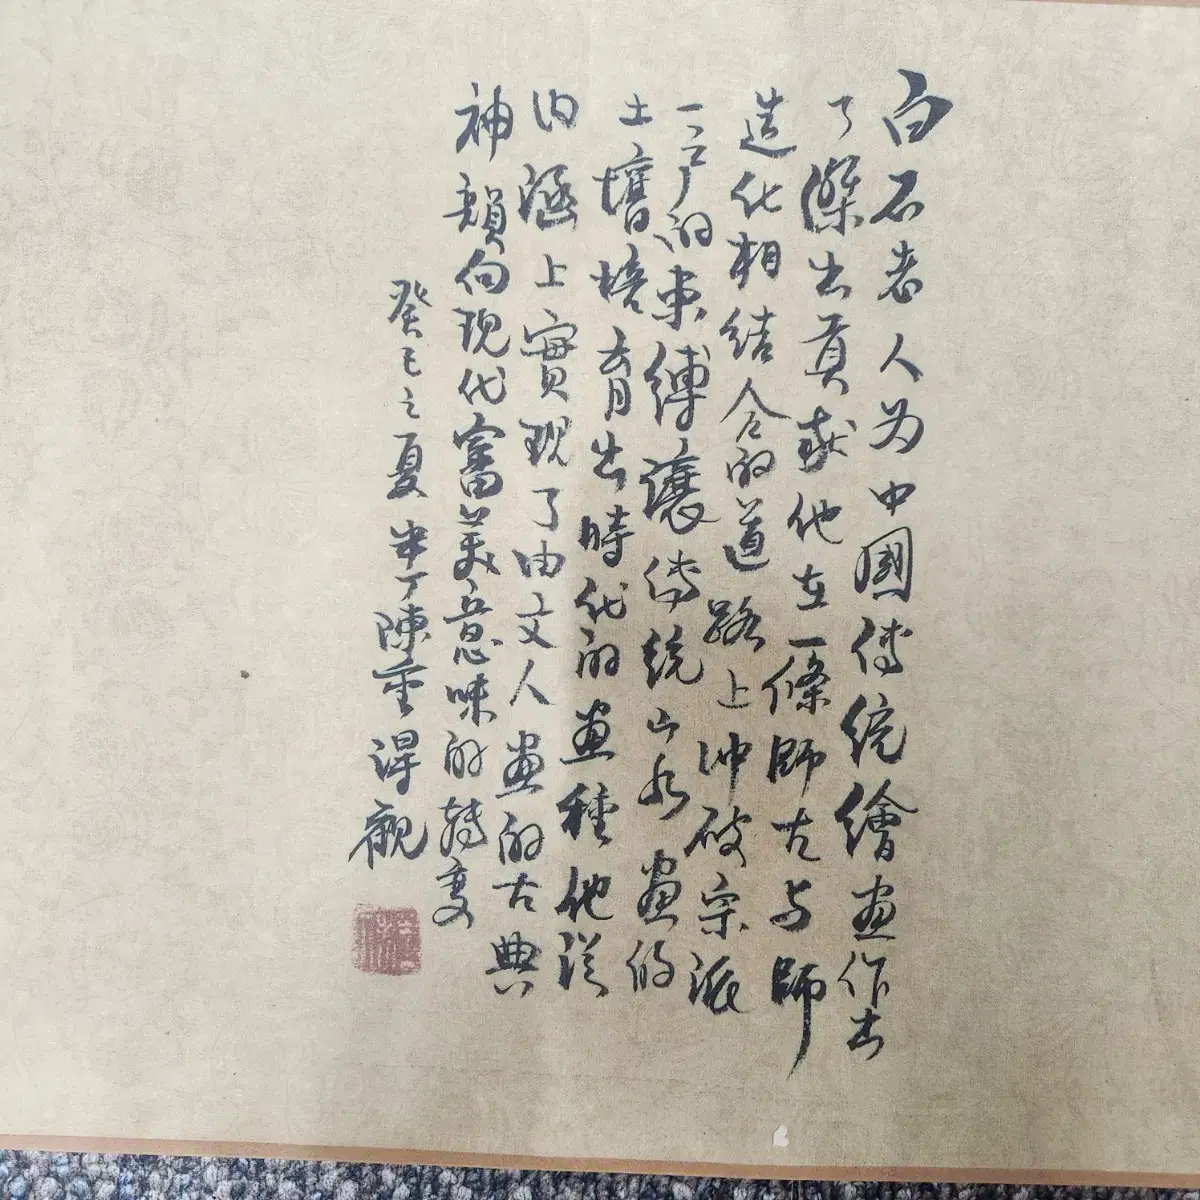 白石老人为中國傳统繪畫作出
了傑出貢献他在一條師古与師
造化相结合的道路上冲破宗派
一户的束縛讓傳统山水畫的
土增培育出時代的畫種他從
内涵上實現了由文人畫的古典
神韻向現代審美意味的转变
癸巳之夏半丁陳重得觀